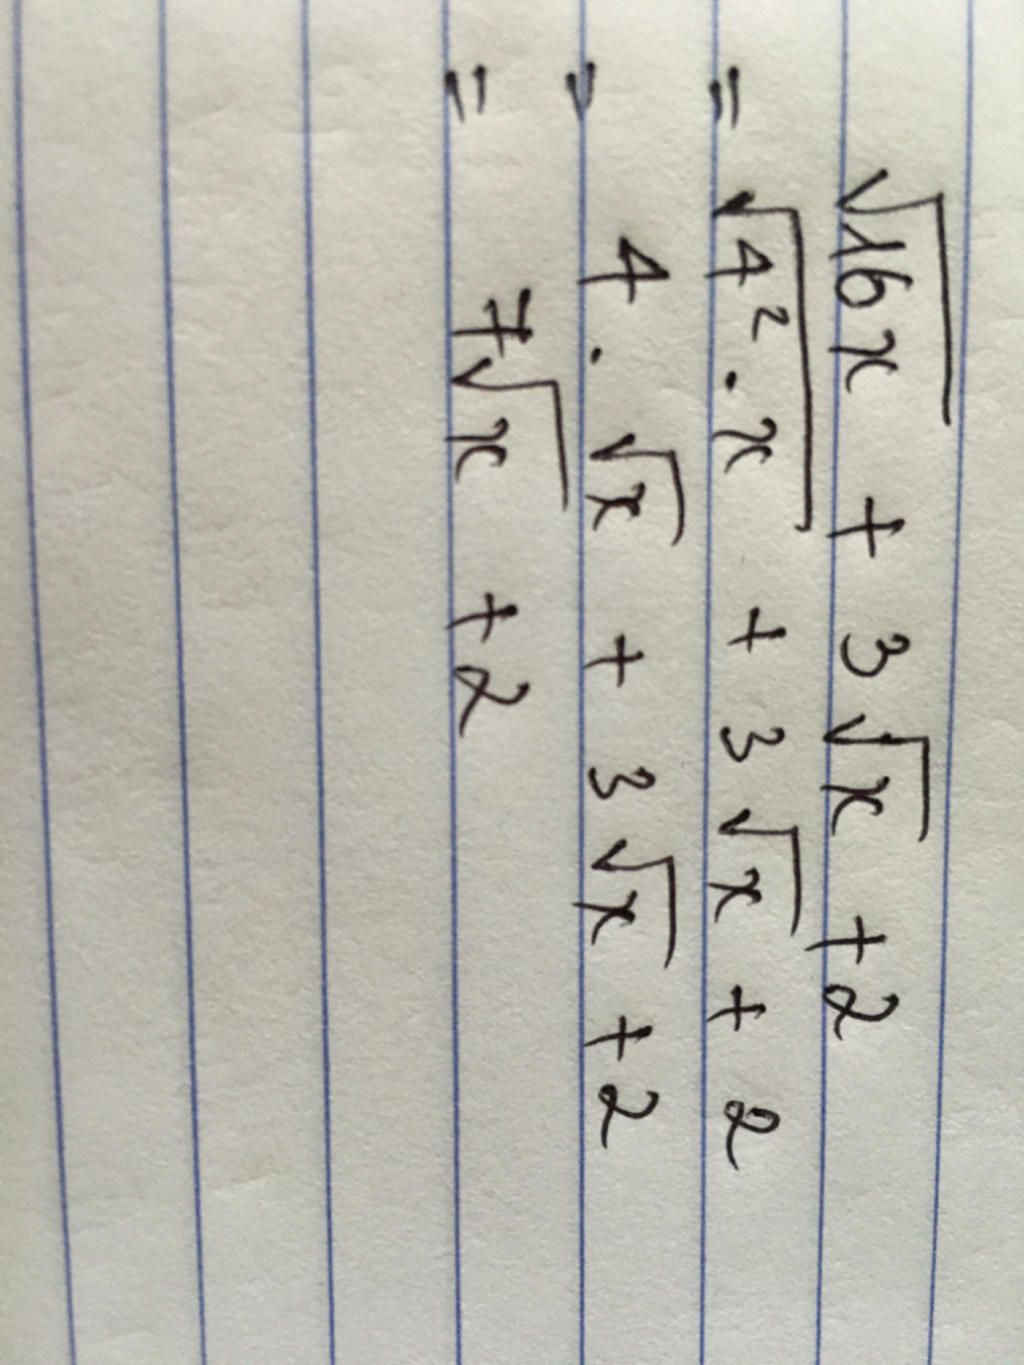 √16x + 3√x + 2
= √4² · x + 3√x + 2
= 4 · √x + 3√x + 2
= 7√x + 2